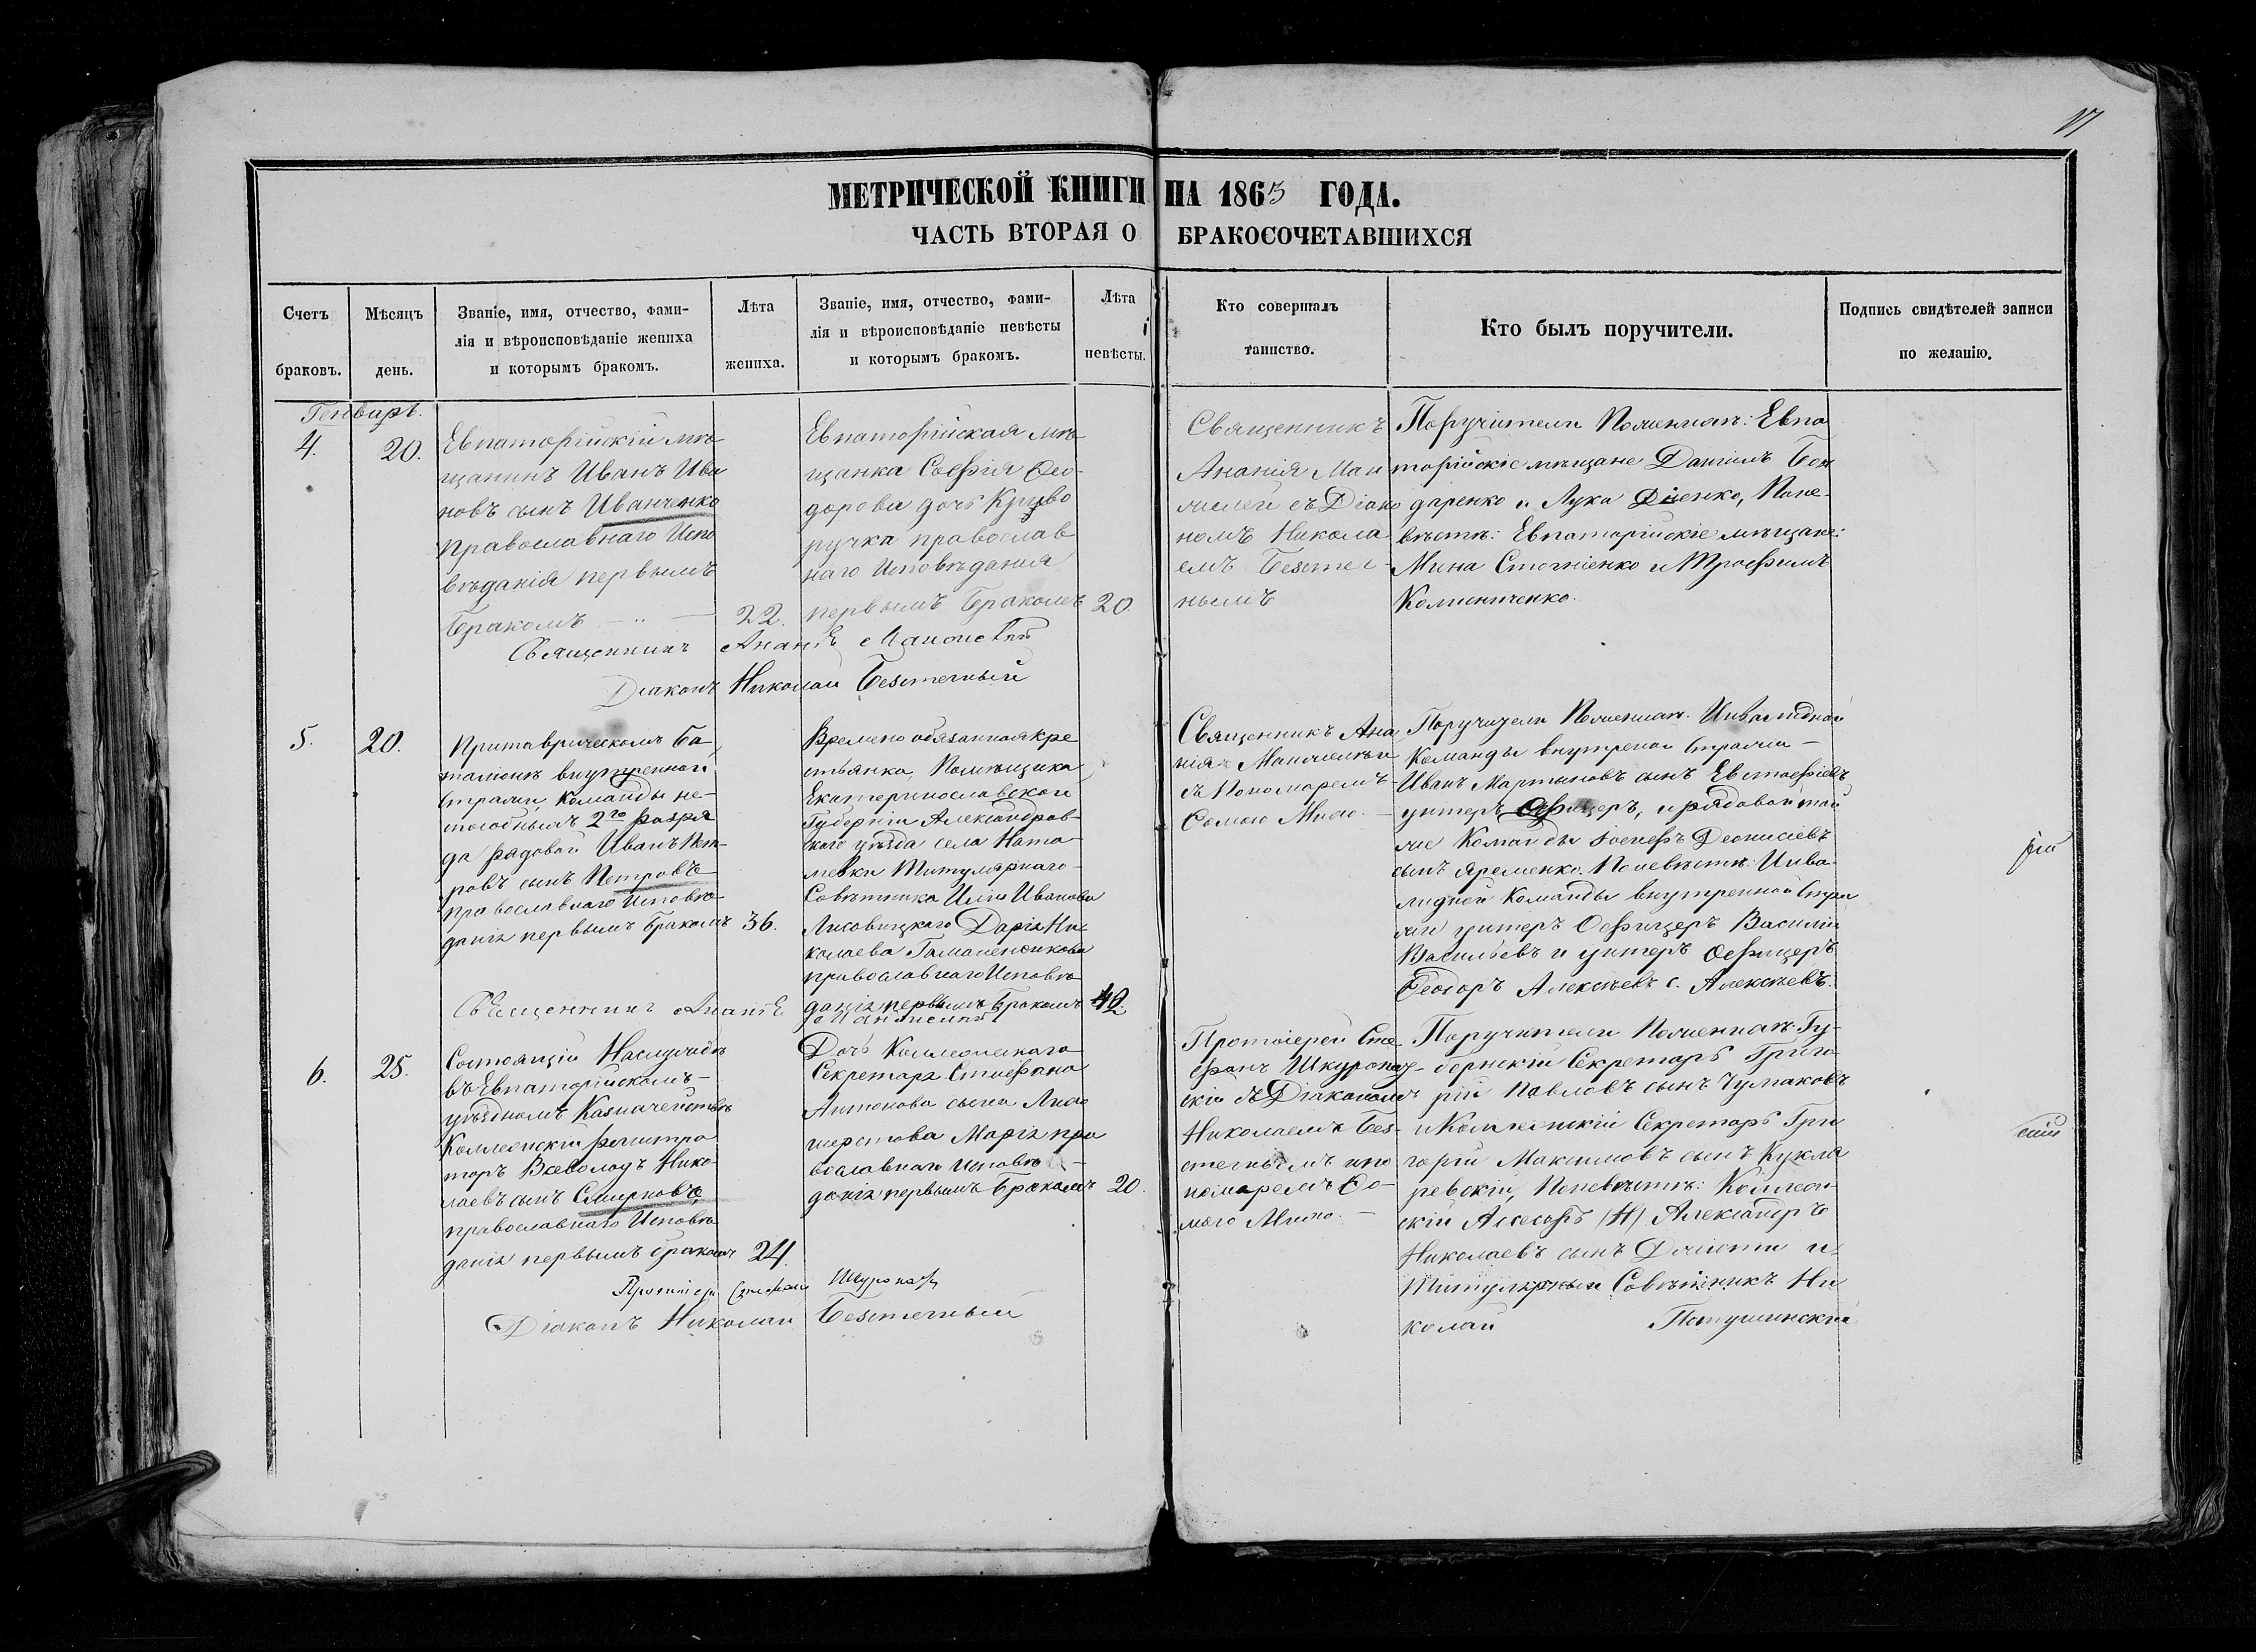 МЕТРИЧЕСКОЙ КНИГИ НА 1865 ГОДА.
ЧАСТЬ ВТОРАЯ О БРАКОСОЧЕТАВШИХСЯ
Счетъ
браковъ.
Мѣсяцъ
день.
Званіе, имя, отчество, фами-
лія и вѣроисповѣданіе жениха
и которымъ бракомъ.
Лѣта
жениха.
Званіе, имя, отчество, фами-
лія и вѣроисповѣданіе невѣсты
и которымъ бракомъ.
Лѣта
невѣсты.
Кто совершалъ
таинство.
Кто былъ поручители.
Подпись свидѣтелей записи
по желанію.
Генварь.
4.
20.
Евпаторійскій мѣ
щанинъ Иванъ Ива
новъ сынъ Иванченко
православнаго Испо
вѣданія первымъ
бракомъ
22.
Евпаторійская мѣ
щанка Софія Ѳео-
дорова дочь Криво
ручка православ
наго Исповѣданія
первымъ бракомъ
20.
Священникъ
Ананія
съ Діако
номъ Никола
емъ
Поручители По женихѣ: Евпа
торійскіе мѣщане Даніилъ Бон
даренко и Лука, По не-
вѣстѣ: Евпаторійскіе мѣщане:
Мина и Трофимъ
Священникъ Ананія
Діаконъ Николай
5.
20.
При таврическомъ ба
таліонѣ внутренной
стражи, команды не-
способныхъ 2го разря
да рядовой Иванъ Пет-
ровъ сынъ Петровъ
православнаго Исповѣ
данія первымъ бракомъ
36.
Временно обязанная кре
стьянка, Помѣщика
Екатеринославской
Губерніи Александров-
скаго уѣзда села Ната-
левки Титулярнаго
Совѣтника Ильи Иванова
Дарія Ни-
колаева
православнаго Исповѣ
данія первымъ бракомъ
Священникъ Ана
нія
съ Пономаремъ
Ѳомою
Поручители По женихѣ. Инвалидной
Команды внутреной стражи
Иванъ Мартыновъ сынъ Евстафіевъ
унтеръ Офицеръ, и рядовой той
же Команды Іосифъ Діонисіевъ
сынъ Яременко. По невѣстѣ: Инва-
лидной Команды внутренной стра
жи унтеръ Офицеръ Василій
Васильевъ и унтеръ Офицеръ
Ѳеодоръ Алексѣевъ с. Алексѣевъ.
Священникъ Ананія
6.
25.
Состоящій На службѣ
въ Евпаторійскомъ
уѣздномъ Казначействѣ
Коллежскій регистра
торъ Всеволодъ Нико
лаевъ сынъ Смирновъ,
православнаго Исповѣ
данія первымъ бракомъ
24.
Дочь Коллежскаго
Секретаря Стефана
Антонова сына
Марія пра
вославнаго Исповѣ
данія первымъ бракомъ
20.
Протоіерей Сте-
фанъ
съ Діакономъ
Николаемъ
и по
номаремъ Ѳо-
мою
Поручители По женихѣ: Гу-
бернскій Секретарь Григо
рій Павловъ сынъ Чумаковъ
и Коллежскій Секретарь Гри
горій Максимовъ сынъ Кукля
ревскій, По невѣстѣ: Коллеж-
скій Асесоръ (Н) Александръ
Николаевъ сынъ и
Титулярный Совѣтникъ Ни
колай
Протоіерей Стефанъ
Діаконъ Николай